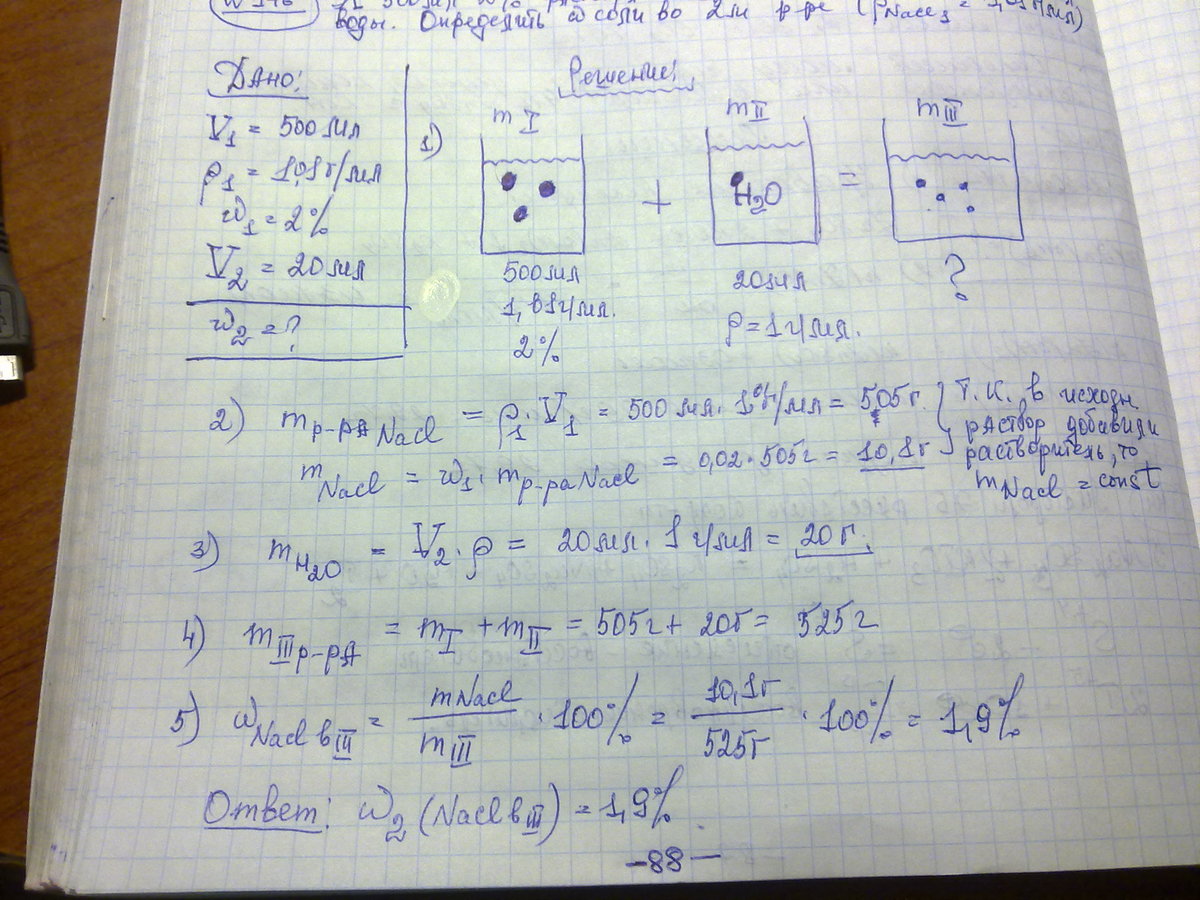 воды. Определить ω соли во 2-м р-ре
Дано:
V₁ = 500 мл
ρ₁ = 1,01 г/мл
ω₁ = 2%
V₂ = 20 мл
ω₂ = ?
Решение:
1)
m I
m II
m III
+
H₂O
=
500 мл
1,01 г/мл.
2%
20 мл
ρ = 1 г/мл.
?
2) m р-рА NaCl = ρ₁ · V₁ = 500 мл · 1,01 г/мл = 505 г.
m NaCl = ω₁ · m р-ра NaCl = 0,02 · 505 г = 10,1 г
т.к. в исходн
раствор добавили
растворитель, то
m NaCl = const
3) m H₂O = V₂ · ρ = 20 мл · 1 г/мл = 20 г.
4) m III р-рА = m I + m II = 505 г + 20 г = 525 г
5) ω NaCl в III = m NaCl / m III · 100% = 10,1 г / 525 г · 100% = 1,9%
Ответ: ω₂ (NaCl в III) = 1,9%.
-88-